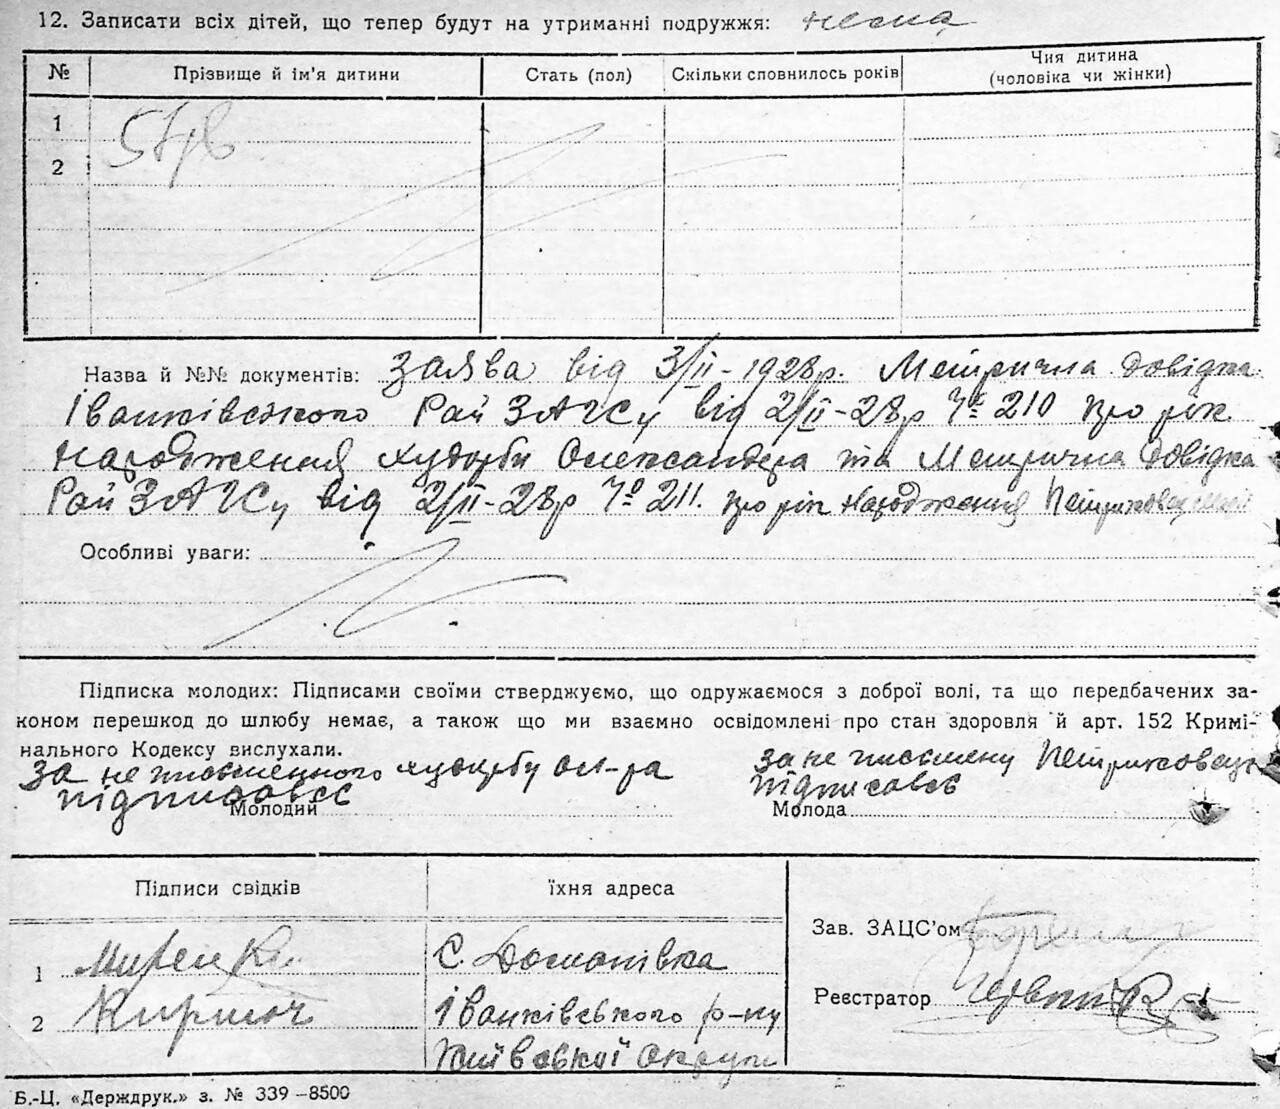 12. Записати всіх дітей, що тепер будут на утриманні подружжя: нема
№ Прізвище й ім'я дитини Стать (пол) Скільки сповнилось років Чия дитина
(чоловіка чи жінки)
1
2
Назва й №№ документів: Заява від 3/II-1928р. Метрична довідка
Іванківського РайЗАГСу від 2/II-28р № 210 про рік
народження Худорби Олександра та Метрична довідка
РайЗАГСу від 2/II-28р № 211. про рік народження
Особливі уваги:
Підписка молодих: Підписами своїми стверджуємо, що одружаємося з доброї волі, та що передбачених за-
коном перешкод до шлюбу немає, а також що ми взаємно освідомлені про стан здоровля й арт. 152 Кримі-
нального Кодексу вислухали.
За не письменного Худорбу Ол-ра за не письмену
підписовсє підписовсє
Молодий Молода
Підписи свідків їхня адреса
Зав. ЗАЦС'ом
1 с.
2 Іванківського р-ну
Реєстратор
Київської Округи
Б.-Ц. «Держдрук.» з. № 339–8500